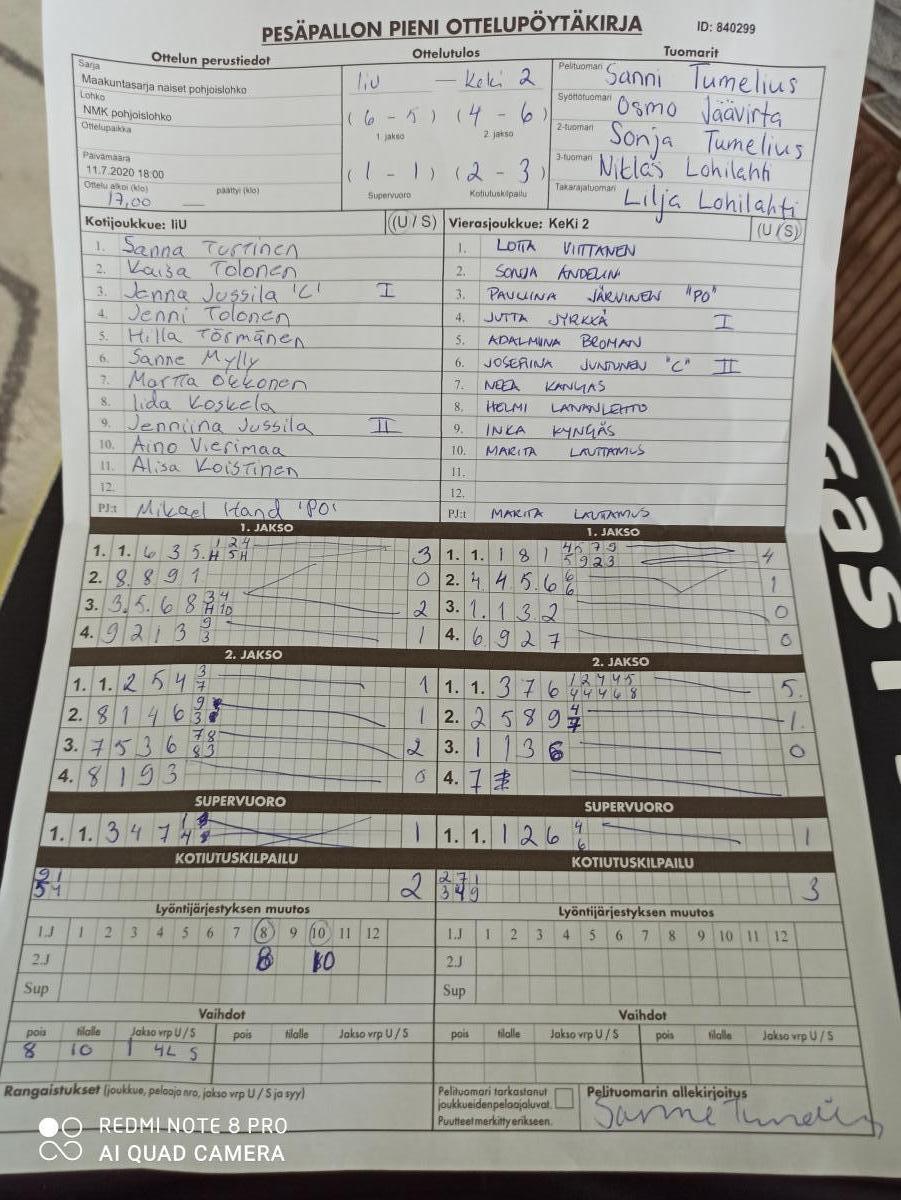 PESÄPALLON PIENI OTTELUPÖYTÄKIRJA ID: 840299
Ottelun perustiedot Ottelutulos Tuomarit
Sarja
Maakuntasarja naiset pohjoislohko
Lohko
NMK pohjoislohko
Ottelupaikka
Päivämäärä
11.7.2020 18:00
Ottelu alkoi (klo) päättyi (klo)
17,00
IiU — Keki 2
(6 - 5) (4 - 6)
1. jakso 2. jakso
(1 - 1) (2 - 3)
Supervuoro Kotiutuskilpailu
Pelituomari Sanni Tumelius
Syöttötuomari Osmo Jäävirta
2-tuomari Sonja Tumelius
3-tuomari Niklas Lohilahti
Takarajatuomari Lilja Lohilahti
Kotijoukkue: IiU (U / S)
1. Sanna Turtinen
2. Kaisa Tolonen
3. Jenna Jussila 'C' I
4. Jenni Tolonen
5. Hilla Törmänen
6. Sanne Mylly
7. Martta Okkonen
8. Iida Koskela
9. Jenniina Jussila II
10. Aino Vierimaa
11. Alisa Koistinen
12.
PJ:t Mikael Hand 'PO'
Vierasjoukkue: KeKi 2 (U / S)
1. LOTTA VIITTANEN
2. SONJA ANDELIN
3. PAULIINA JÄRVINEN "PO"
4. JUTTA JYRKKÄ I
5. ADALMIINA BROMAN
6. JOSEFIINA JUNTUNEN "C" II
7. NEEA KANGAS
8. HELMI LANANLEHTO
9. INKA KYNGÄS
10. MARITA LAUTTAMUS
11.
12.
PJ:t MARITA LAUTTAMUS
1. JAKSO
1. 1. 6 3 5. 1 2 4 H 5 H 3
2. 8. 8 9 1 0
3. 3. 5. 6 8 3 4 H 10 2
4. 9 2 1 3 9 3 1
2. JAKSO
1. 1. 2 5 4 3 7 1
2. 8 1 4 6 9 3 1
3. 7 5 3 6 7 8 8 3 2
4. 8 1 9 3 0
SUPERVUORO
1. 1. 3 4 7 1 4 1
KOTIUTUSKILPAILU
9 1 5 4 2
1. JAKSO
1. 1. 1 8 1 4 5 7 9 5 9 2 3 4
2. 4 4 5. 6 6 6 1
3. 1. 1 3 2 0
4. 6 9 2 7 0
2. JAKSO
1. 1. 3 7 6 1 2 4 4 5 4 4 4 6 8 5.
2. 2 5 8 9 4 7 1.
3. 1 1 3 6 0
4. 7
SUPERVUORO
1. 1. 1 2 6 4 6 1
KOTIUTUSKILPAILU
2 7 1 3 4 9 3
Lyöntijärjestyksen muutos
1.J 1 2 3 4 5 6 7 8 9 10 11 12
2.J 8 10
Sup
Vaihdot
pois tilalle Jakso vrp U / S pois tilalle Jakso vrp U / S
8 10 1 4L S
Lyöntijärjestyksen muutos
1.J 1 2 3 4 5 6 7 8 9 10 11 12
2.J
Sup
Vaihdot
pois tilalle Jakso vrp U / S pois tilalle Jakso vrp U / S
Rangaistukset (joukkue, pelaaja nro, jakso vrp U / S ja syy)
Pelituomari tarkastanut
joukkueiden pelaajaluvat.
Puutteet merkitty erikseen.
Pelituomarin allekirjoitus
REDMI NOTE 8 PRO
AI QUAD CAMERA